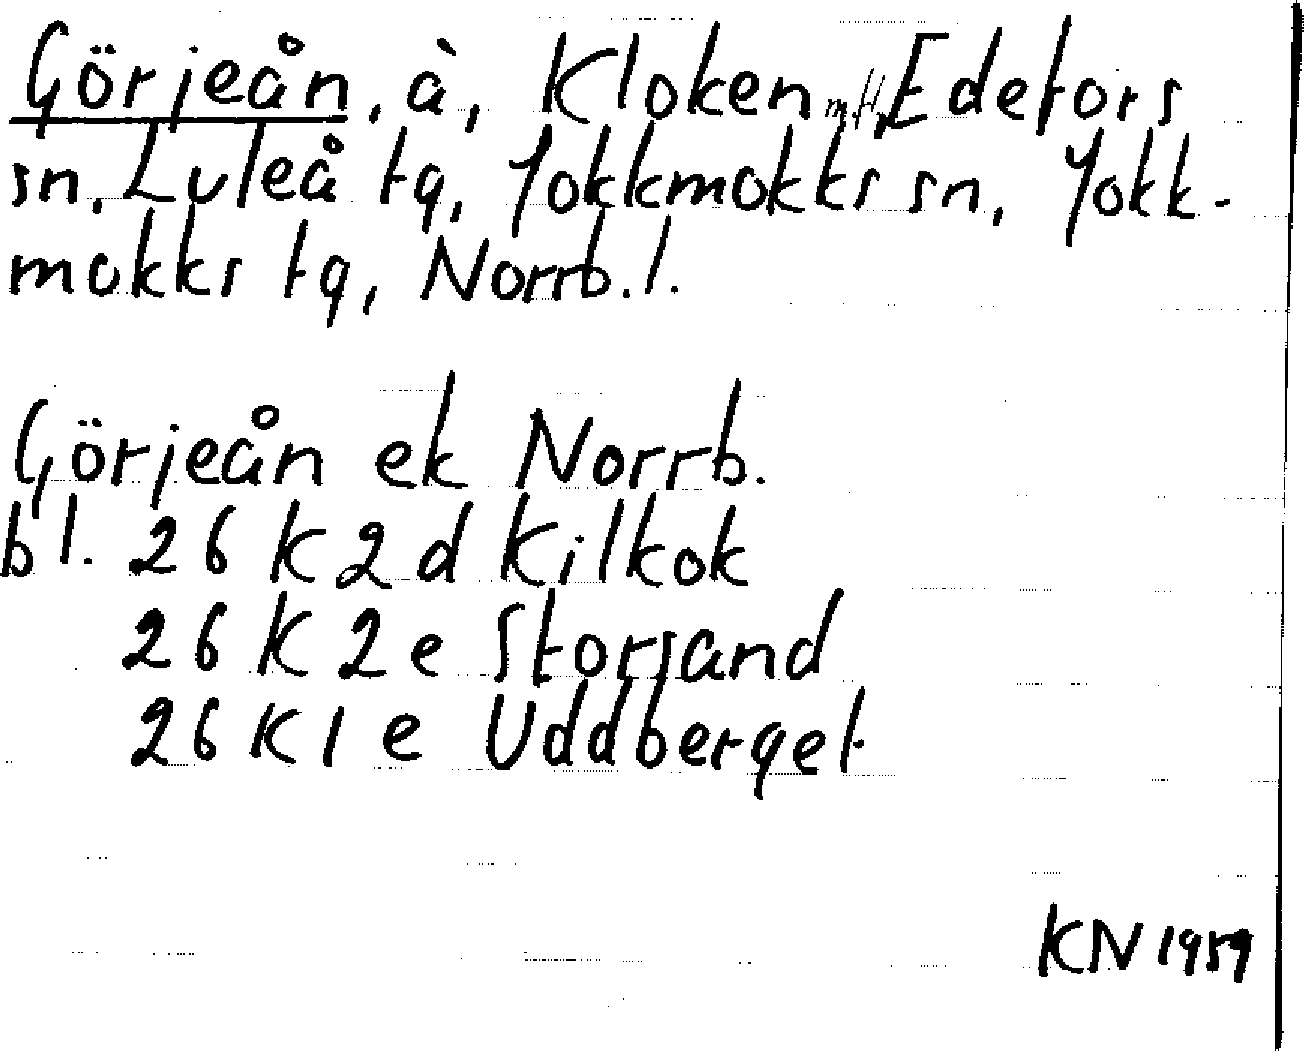 Görjeån, å, Kloken m.fl., Edefors
sn, Luleå tg, Jokkmokks sn, Jokk-
mokks tg, Norrb. l.
Görjeån ek Norrb.
bl. 26 K 2 d Kilkok
26 K 2 e Storsand
26 K 1 e Uddberget
KN 1959